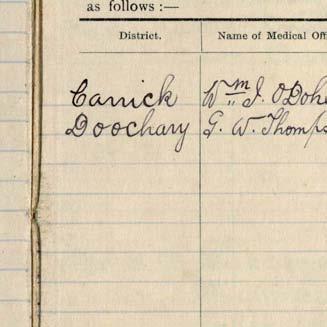 as follows :—
District. Name of Medical Offi
Carrick Wm. J. O'Dohe
Doochary G. W. Thomps